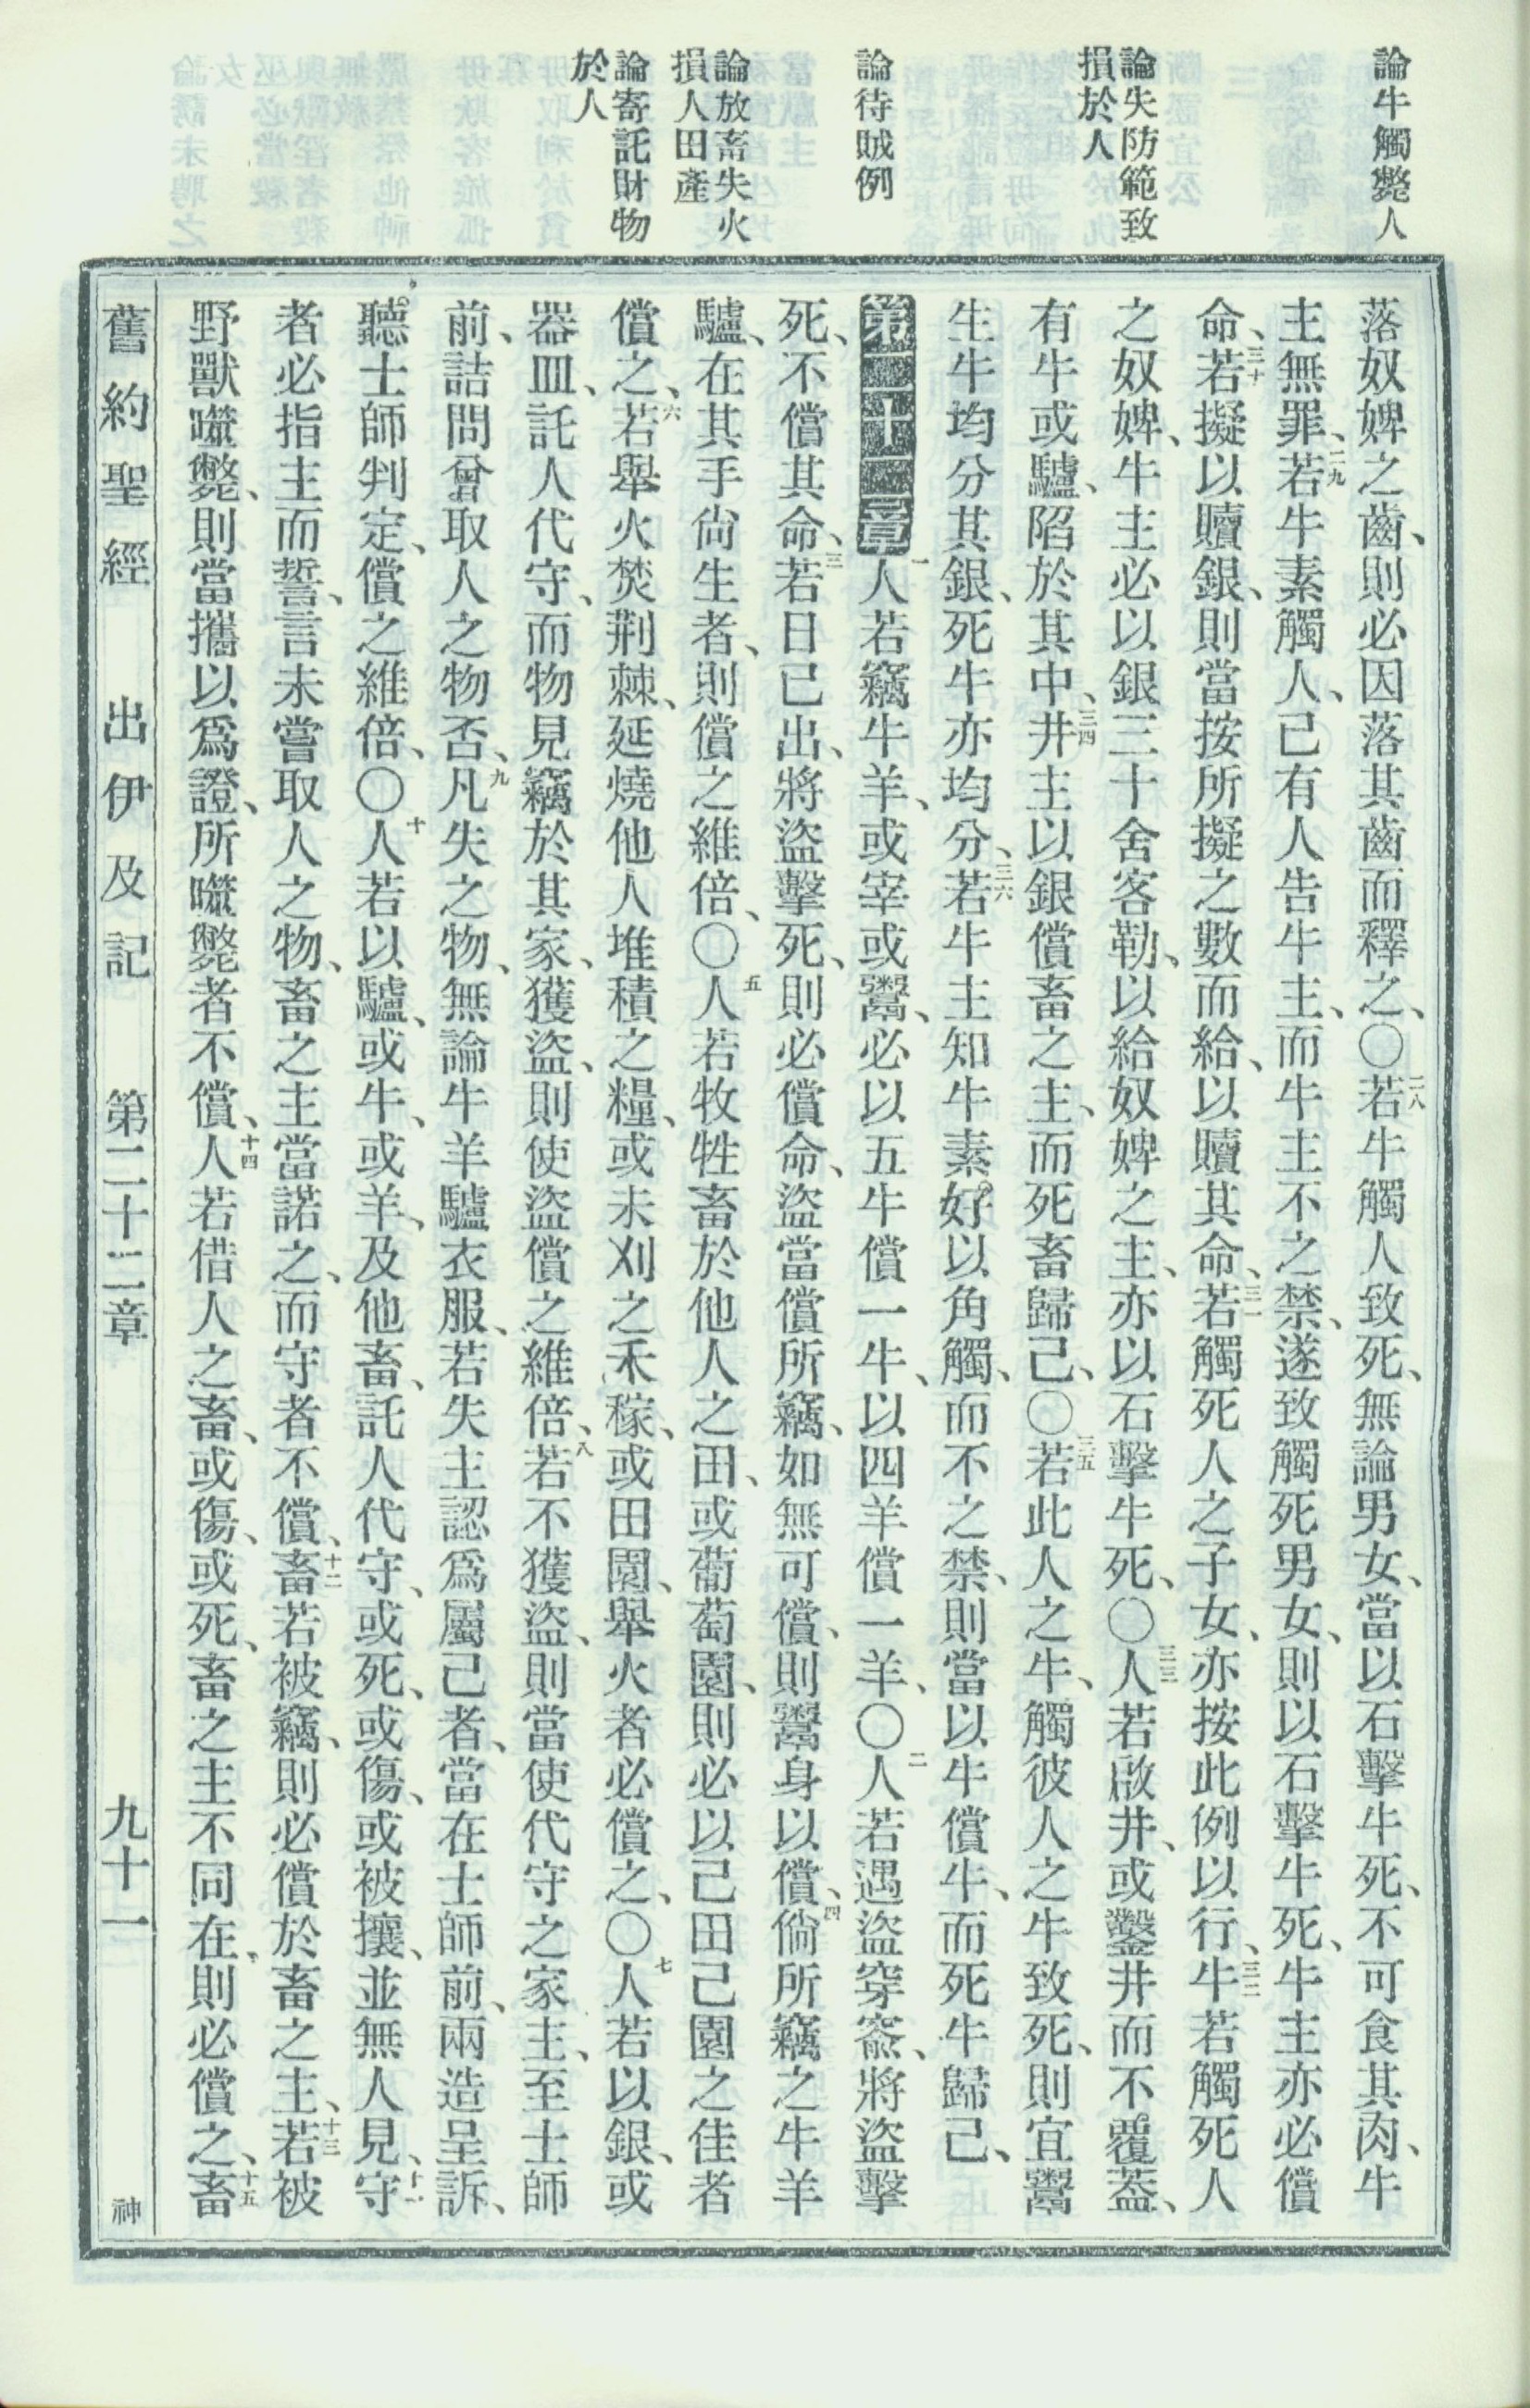 論牛觸斃人
論失防範致
損於人
論待賊例
論放畜失火
損人田產
論寄託財物
於人
落奴婢之齒、則必因落其齒而釋之、〇二八若牛觸人致死、無論男女、當以石擊牛死、不可食其肉、牛
主無罪、二九若牛素觸人、已有人告牛主、而牛主不之禁、遂致觸死男女、則以石擊牛死、牛主亦必償
命、三十若擬以贖銀、則當按所擬之數而給、以贖其命、三一若觸死人之子女、亦按此例以行、三二牛若觸死人
之奴婢、牛主必以銀三十舍客勒、以給奴婢之主、亦以石擊牛死、〇三三人若啟井、或鑿井而不覆蓋、
有牛或驢、陷於其中、三四井主以銀償畜之主、而死畜歸己、〇三五若此人之牛、觸彼人之牛致死、則宜鬻
生牛均分其銀、死牛亦均分、三六若牛主知牛素好以角觸、而不之禁、則當以牛償牛、而死牛歸己、
第二十二章一人若竊牛羊、或宰或鬻、必以五牛償一牛、以四羊償一羊、〇二人若遇盜穿窬、將盜擊
死、不償其命、三若日已出、將盜擊死、則必償命、盜當償所竊、如無可償、則鬻身以償、四倘所竊之牛羊
驢、在其手尚生者、則償之維倍、〇五人若牧牲畜於他人之田、或葡萄園、則必以己田己園之佳者
償之、六若舉火焚荆棘、延燒他人堆積之糧、或未刈之禾稼、或田園、舉火者必償之、〇七人若以銀、或
器皿、託人代守、而物見竊於其家、獲盜、則使盜償之維倍、八若不獲盜、則當使代守之家主、至士師
前、詰問曾取人之物否、九凡失之物、無論牛羊驢衣服、若失主認爲屬己者、當在士師前、兩造呈訴、
聽士師判定、償之維倍、〇十人若以驢、或牛、或羊、及他畜、託人代守、或死、或傷、或被攘、並無人見、十一守
者必指主而誓、言未嘗取人之物、畜之主當諾之、而守者不償、十二畜若被竊、則必償於畜之主、十三若被
野獸噬斃、則當攜以爲證、所噬斃者不償、十四人若借人之畜、或傷、或死、畜之主不同在、則必償之、十五畜
舊約聖經 出伊及記 第二十二章 九十一 神